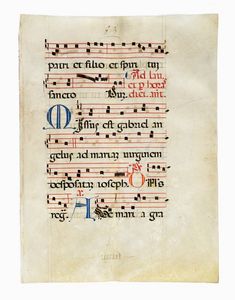 patri et filio et spiri tui
sancto Ad lau
et p hora
dici. ant.
Missus est gabriel an
gelus ad mariam virginem
desposatam ioseph.
Ave maria gra